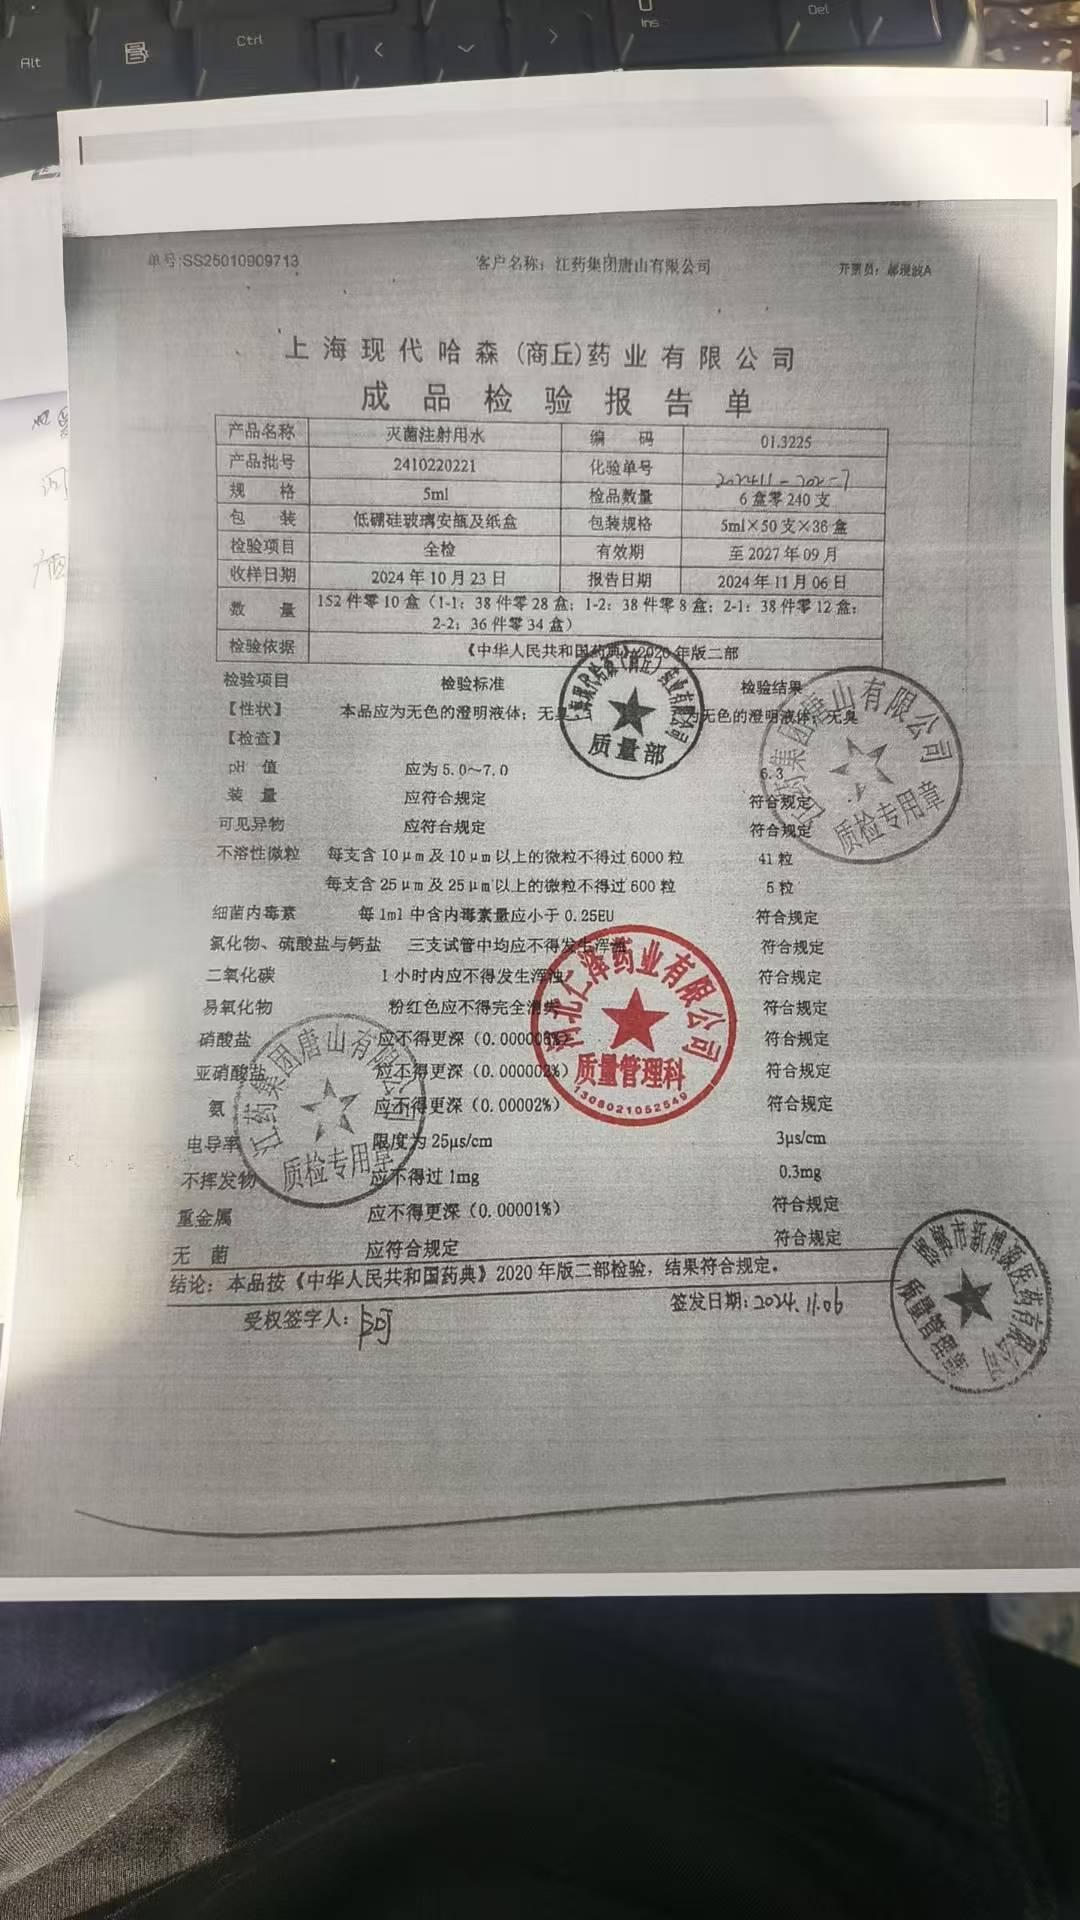 Alt
Ctrl
Ins
Del
单号:SS25010909713
客户名称：江药集团唐山有限公司
开票员：
上海现代哈森(商丘)药业有限公司
成品检验报告单
产品名称 灭菌注射用水 编码 01.3225
产品批号 2410220221 化验单号
规格 5ml 检品数量 6盒零240支
包装 低硼硅玻璃安瓿及纸盒 包装规格 5ml×50支×36盒
检验项目 全检 有效期 至2027年09月
收样日期 2024年10月23日 报告日期 2024年11月06日
数量 152件零10盒（1-1：38件零28盒；1-2：38件零8盒；2-1：38件零12盒；
2-2：36件零34盒）
检验依据 《中华人民共和国药典》2020年版二部
检验项目 检验标准 检验结果
【性状】 本品应为无色的澄明液体；无臭 为无色的澄明液体；无臭
【检查】
pH 值 应为5.0～7.0 6.3
装量 应符合规定 符合规定
可见异物 应符合规定 符合规定
不溶性微粒 每支含10μm及10μm以上的微粒不得过6000粒 41粒
每支含25μm及25μm以上的微粒不得过600粒 5粒
细菌内毒素 每1ml中含内毒素量应小于0.25EU 符合规定
氯化物、硫酸盐与钙盐 三支试管中均应不得发生浑浊 符合规定
二氧化碳 1小时内应不得发生浑浊 符合规定
易氧化物 粉红色应不得完全消失 符合规定
硝酸盐 应不得更深（0.000006%） 符合规定
亚硝酸盐 应不得更深（0.000002%） 符合规定
氨 应不得更深（0.00002%） 符合规定
电导率 限度为25μs/cm 3μs/cm
不挥发物 应不得过1mg 0.3mg
重金属 应不得更深（0.00001%） 符合规定
无菌 应符合规定 符合规定
结论：本品按《中华人民共和国药典》2020年版二部检验，结果符合规定。
受权签字人：
签发日期：2024.11.06
上海现代哈森（商丘）药业有限公司
质量部
江药集团唐山有限公司
质检专用章
河北仁泽药业有限公司
质量管理科
1308021052549
江药集团唐山有限公司
质检专用章
市新博源医药有限公司
质量管理部